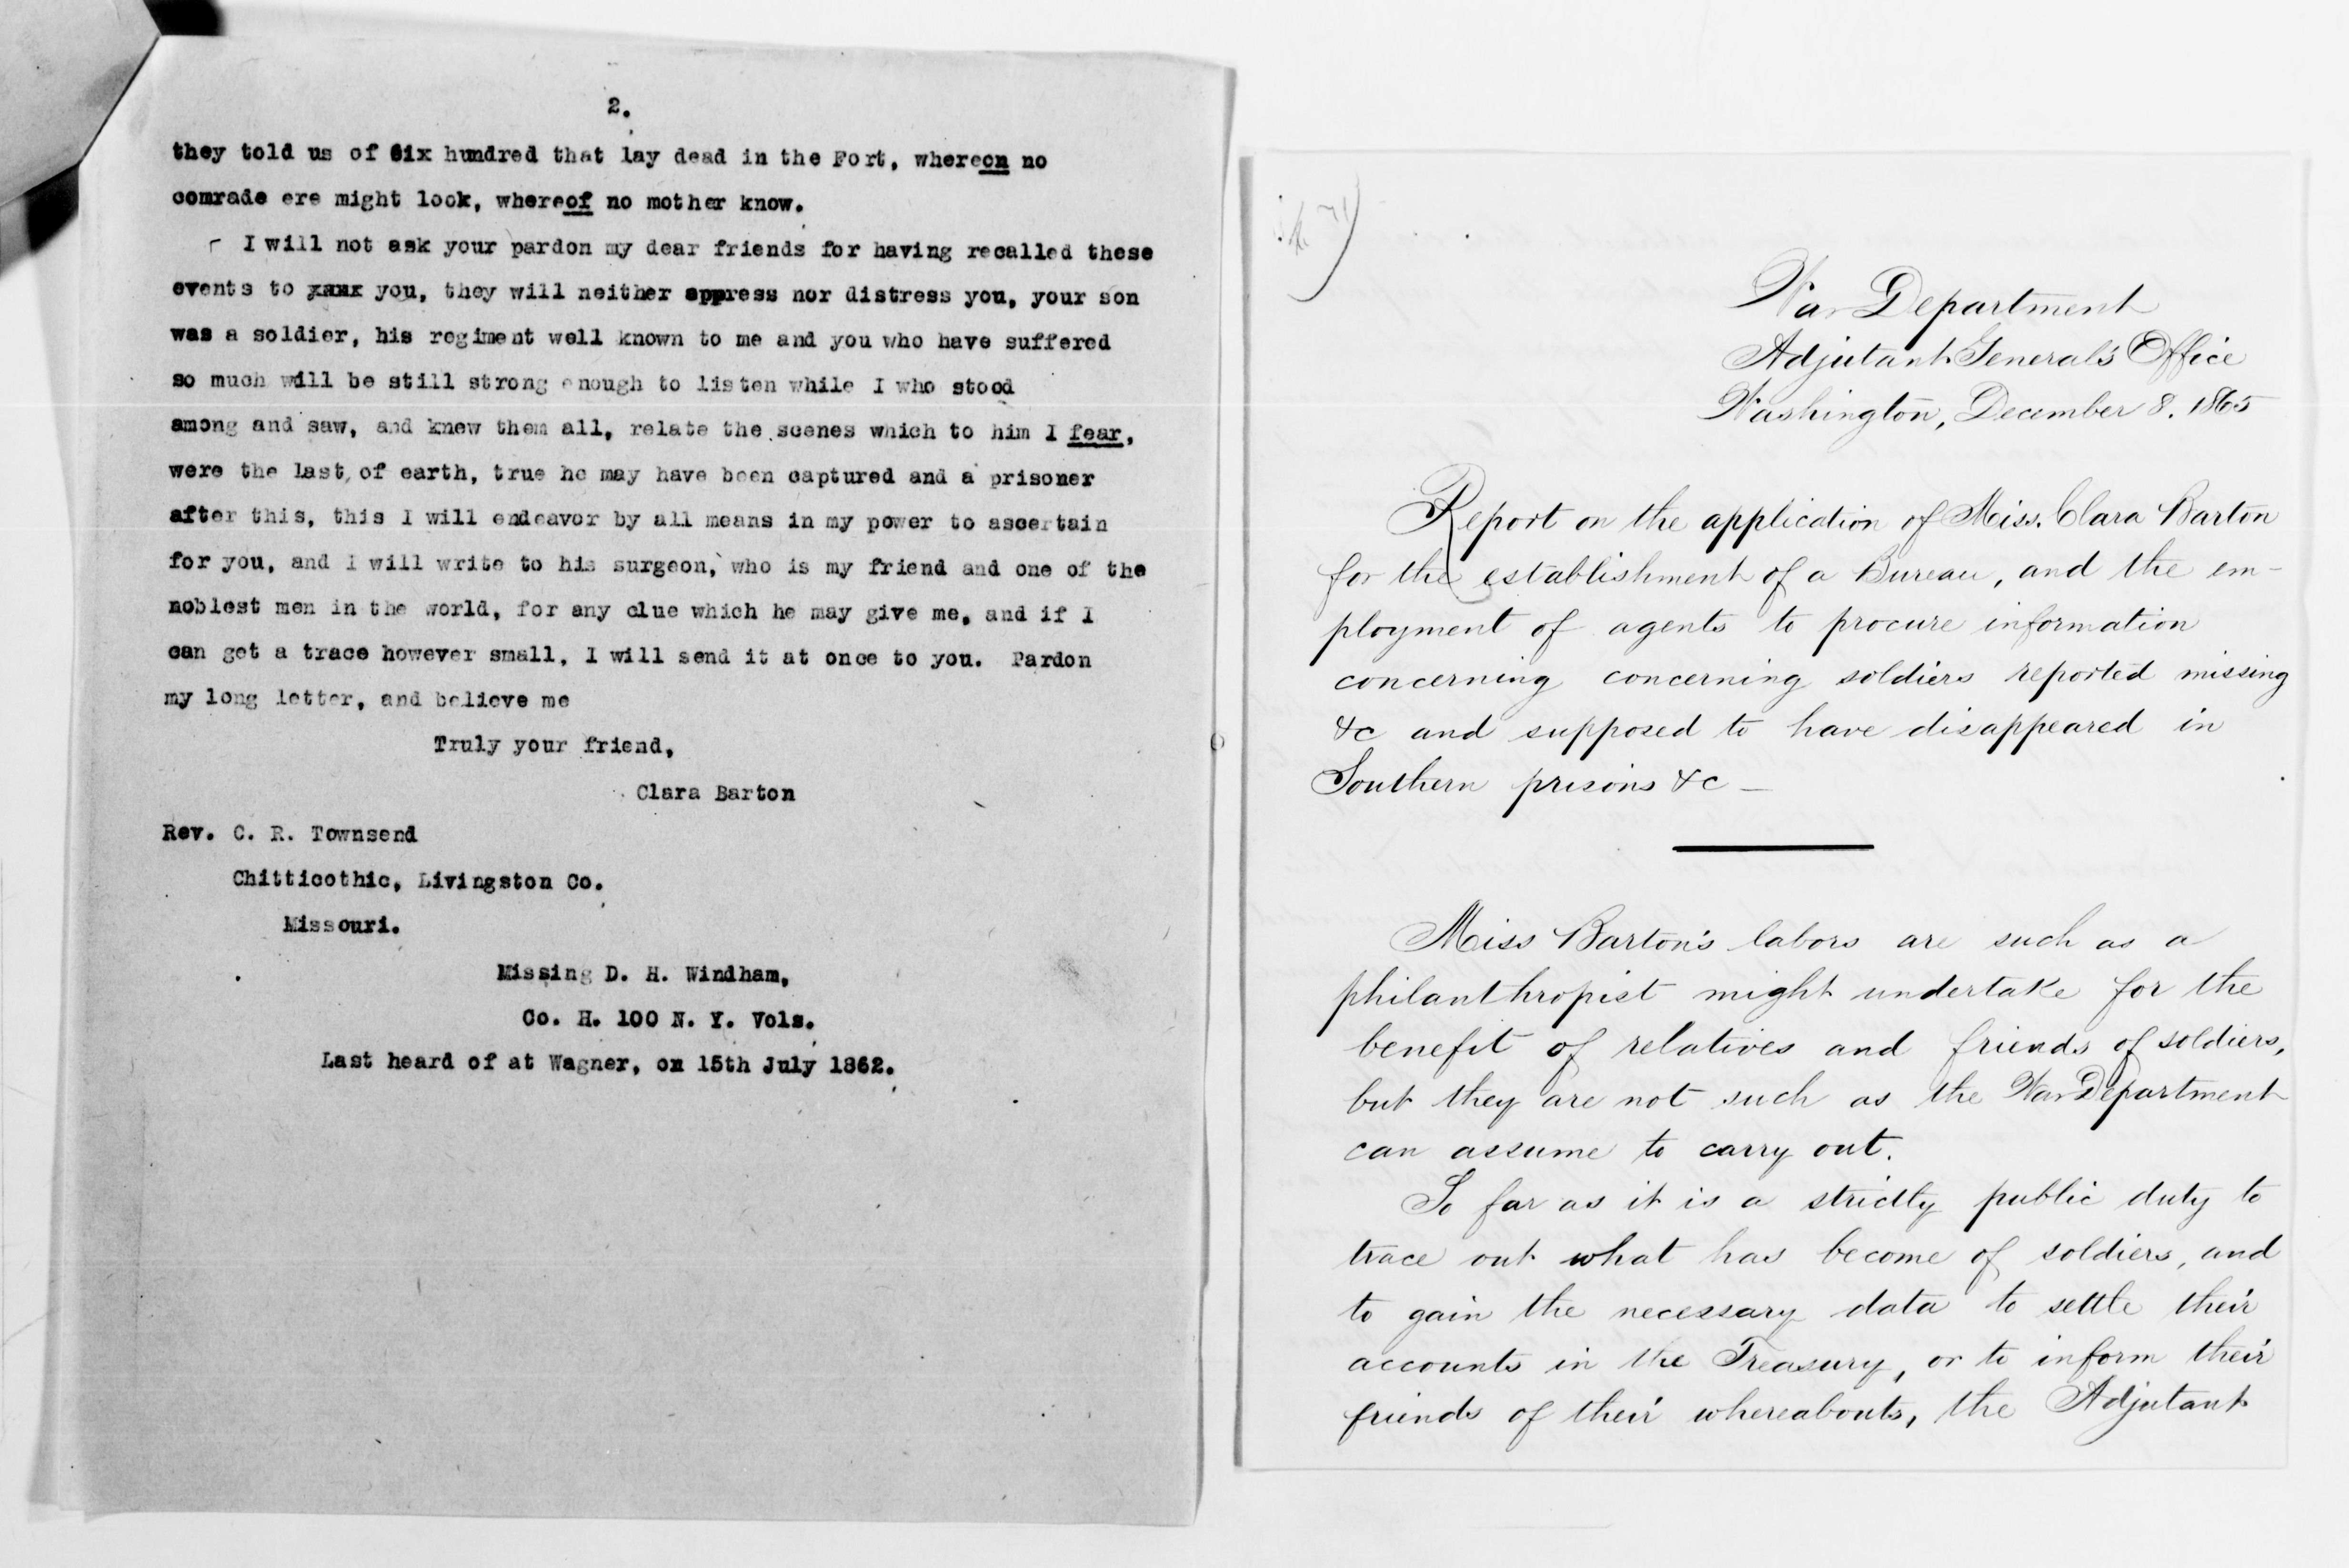 2.
they told us of six hundred that lay dead in the Fort, whereon no
comrade ere might look, whereof no mother know.
I will not ask your pardon my dear friends for having recalled these
events to you, they will neither oppress nor distress you, your son
was a soldier, his regiment well known to me and you who have suffered
so much will be still strong enough to listen while I who stood
among and saw, and knew them all, relate the scenes which to him I fear,
were the last of earth, true he may have been captured and a prisoner
after this, this I will endeavor by all means in my power to ascertain
for you, and I will write to his surgeon, who is my friend and one of the
noblest men in the world, for any clue which he may give me, and if I
can get a trace however small, I will send it at once to you. Pardon
my long letter, and believe me
Truly your friend,
Clara Barton
Rev. C. R. Townsend
Chitticothic, Livingston Co.
Missouri.
Missing D. H. Windham,
Co. H. 100 N. Y. Vols.
Last heard of at Wagner, on 15th July 1862.
War Department
Adjutant General's Office
Washington, December 8. 1865
Report on the application of Miss. Clara Barton
for the establishment of a Bureau, and the em-
ployment of agents to procure information
concerning concerning soldiers reported missing
&c and supposed to have disappeared in
Southern prisons &c —
Miss Barton's labors are such as a
philanthropist might undertake for the
benefit of relatives and friends of soldiers,
but they are not such as the War Department
can assume to carry out.
So far as it is a strictly public duty to
trace out what has become of soldiers, and
to gain the necessary data to settle their
accounts in the Treasury, or to inform their
friends of their whereabouts, the Adjutant